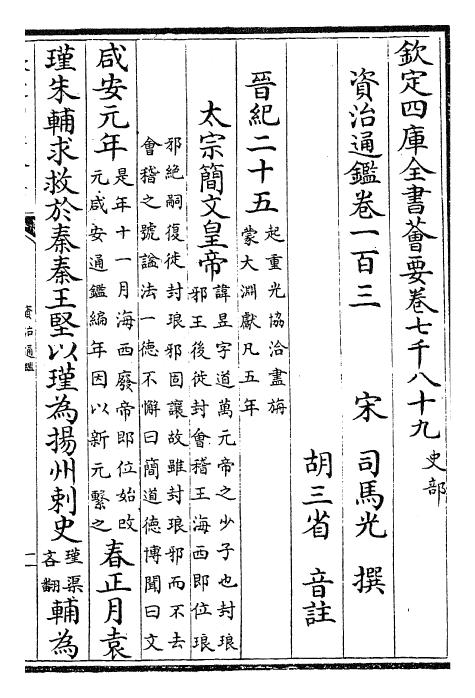 欽定四庫全書薈要卷七千八十九 史部
資治通鑑卷一百三
宋 司馬光 撰
胡三省 音註
晉紀二十五 起重光協洽盡旃
蒙大淵獻凡五年
太宗簡文皇帝 諱昱字道萬元帝之少子也封琅
邪王後徙封會稽王海西即位琅
邪絶嗣復徙封琅邪固讓故雖封琅邪而不去
會稽之號謚法一德不懈曰簡道德博聞曰文
咸安元年 是年十一月海西廢帝即位始改
元咸安通鑑編年因以新元繫之 春正月袁
瑾朱輔求救於秦秦王堅以瑾為揚州刺史 瑾渠
吝翻 輔為
資治通鑑
一